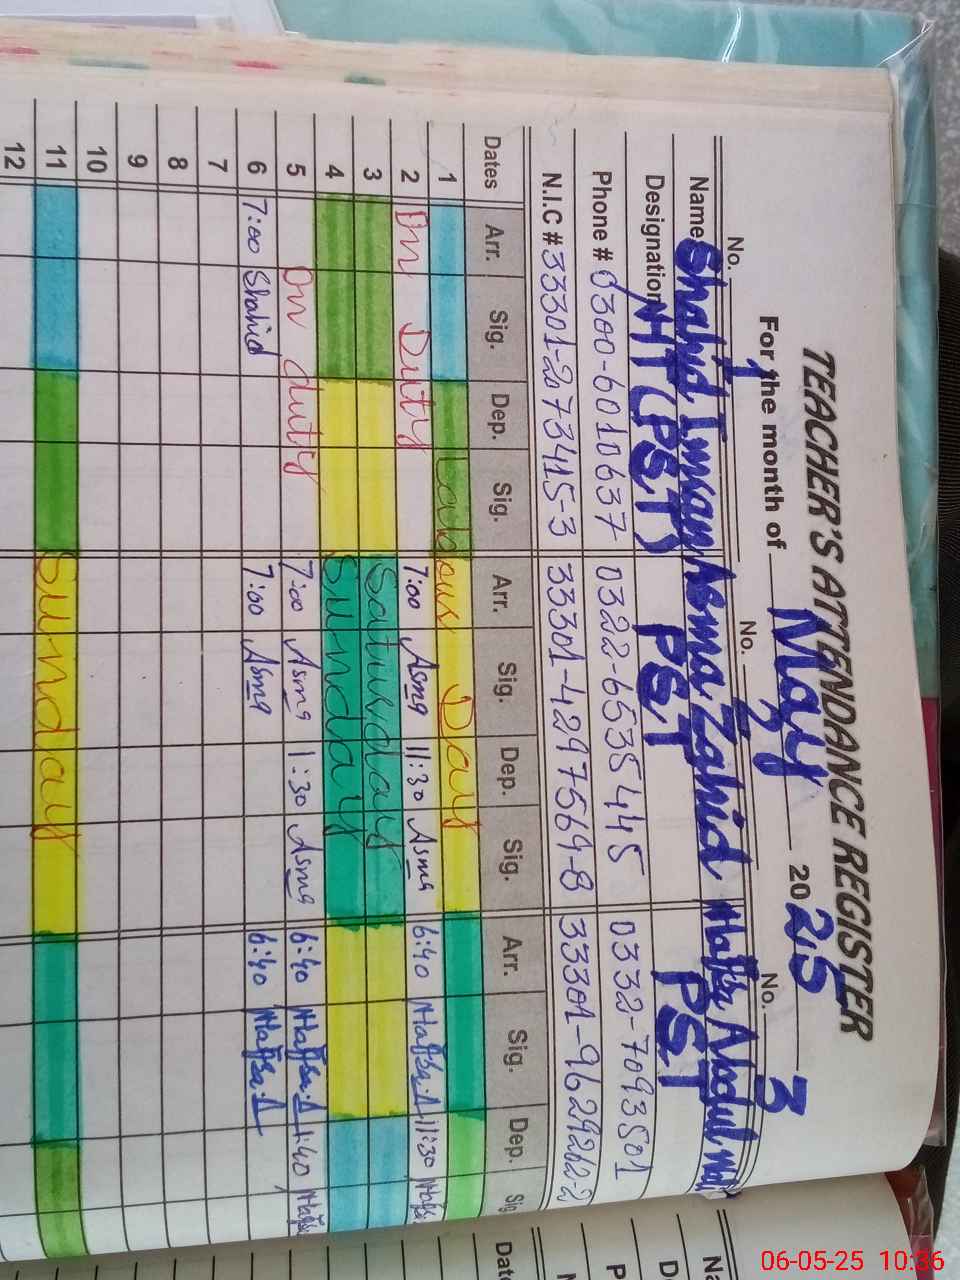 TEACHER'S ATTENDANCE REGISTER
For the month of May 2025
No. 1 No. 2 No. 3
Name Shahid Imran Asma Zahid Hafsa Abdul
Designation HT (PST) PST PST
Phone # 0300-6010637 0322-6535445 0332-7093501
N.I.C # 33301-2073415-3 33301-4297569-8 33301-9629262-2
Dates Arr. Sig. Dep. Sig. Arr. Sig. Dep. Sig. Arr. Sig. Dep. Sig
1 Labour Day
2 On Duty 7:00 Asma 11:30 Asma 6:40 Hafsa.A 11:30 Hafsa
3 Saturday
4 Sunday
5 On duty 7:00 Asma 1:30 Asma 6:40 Hafsa.A 1:40 Hafsa
6 7:00 Shahid 7:00 Asma 6:40 Hafsa.A
7
8
9
10
11 Sunday
12
06-05-25 10:36